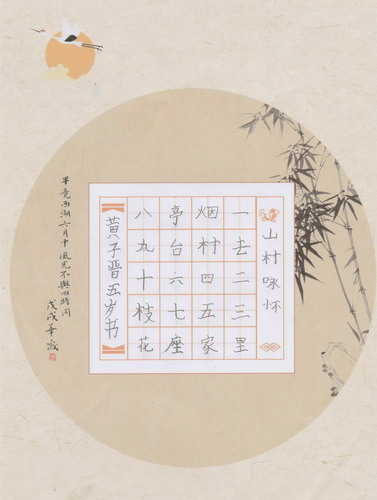 山村咏怀
一去二三里
烟村四五家
亭台六七座
八九十枝花
黄子晋五岁书
毕竟西湖六月中 风光不与四时同
戊戌华岁